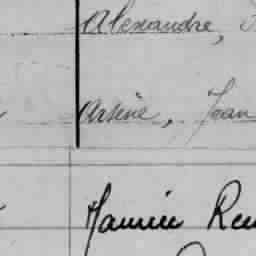 Alexandre,
Arsène, Jean
Maurice